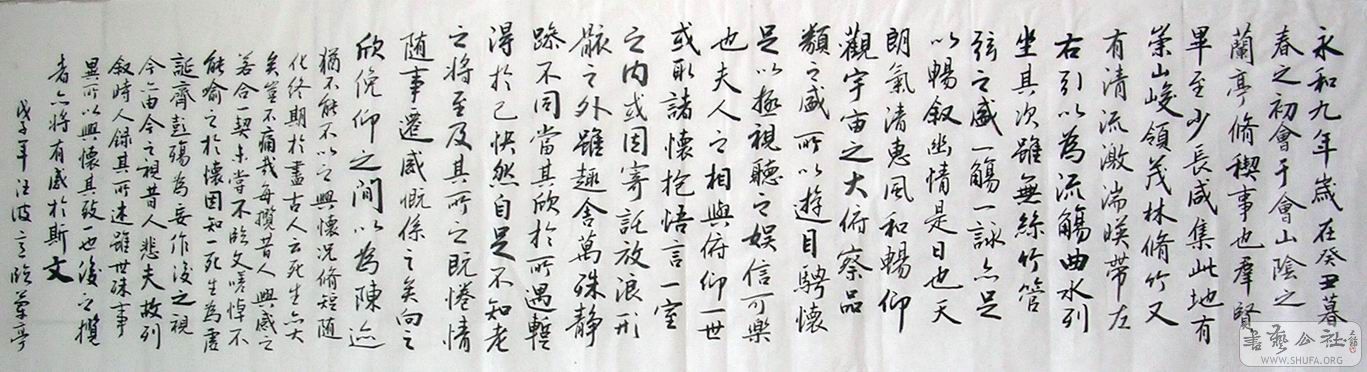 永和九年歲在癸丑暮
春之初會于會山陰之
蘭亭脩稧事也羣賢
畢至少長咸集此地有
崇山峻領茂林脩竹又
有清流激湍暎帶左
右引以為流觴曲水列
坐其次雖無絲竹管
弦之盛一觴一詠亦足
以暢叙幽情是日也天
朗氣清惠風和暢仰
觀宇宙之大俯察品
類之盛所以遊目騁懷
足以極視聽之娱信可樂
也夫人之相與俯仰一世
或取諸懷抱悟言一室
之内或因寄託放浪形
骸之外雖趣舍萬殊静
躁不同當其欣於所遇蹔
得於己快然自足不知老
之将至及其所之既惓情
随事遷感慨係之矣向之
欣俛仰之間以為陳迹
猶不能不以之興懷况脩短随
化終期於盡古人云死生亦大
矣豈不痛哉每攬昔人興感之
若合一契未嘗不臨文嗟悼不
能喻之於懷固知一死生為虚
誕齊彭殤為妄作後之視
今亦由今之視昔人悲夫故列
叙時人録其所述雖世殊事
異所以興懷其致一也後之攬
者亦将有感於斯文
戊子年汪波临蘭亭
書藝公社
WWW.SHUFA.ORG